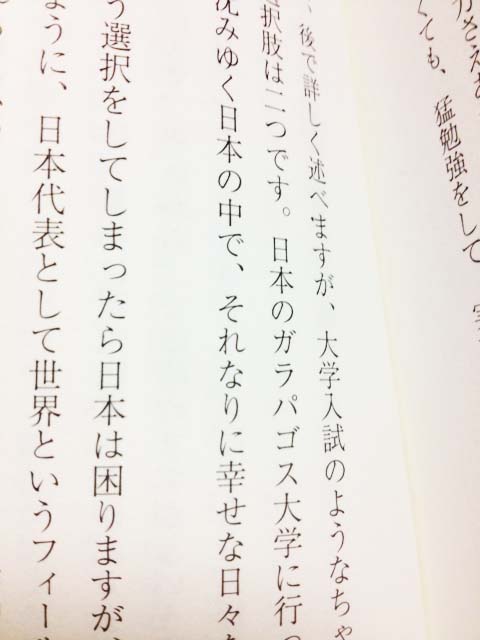 くても、猛勉強をして
、後で詳しく述べますが、大学入試のようなちゃ
選択肢は二つです。日本のガラパゴス大学に行っ
沈みゆく日本の中で、それなりに幸せな日々を
う選択をしてしまったら日本は困りますが、
ように、日本代表として世界というフィール